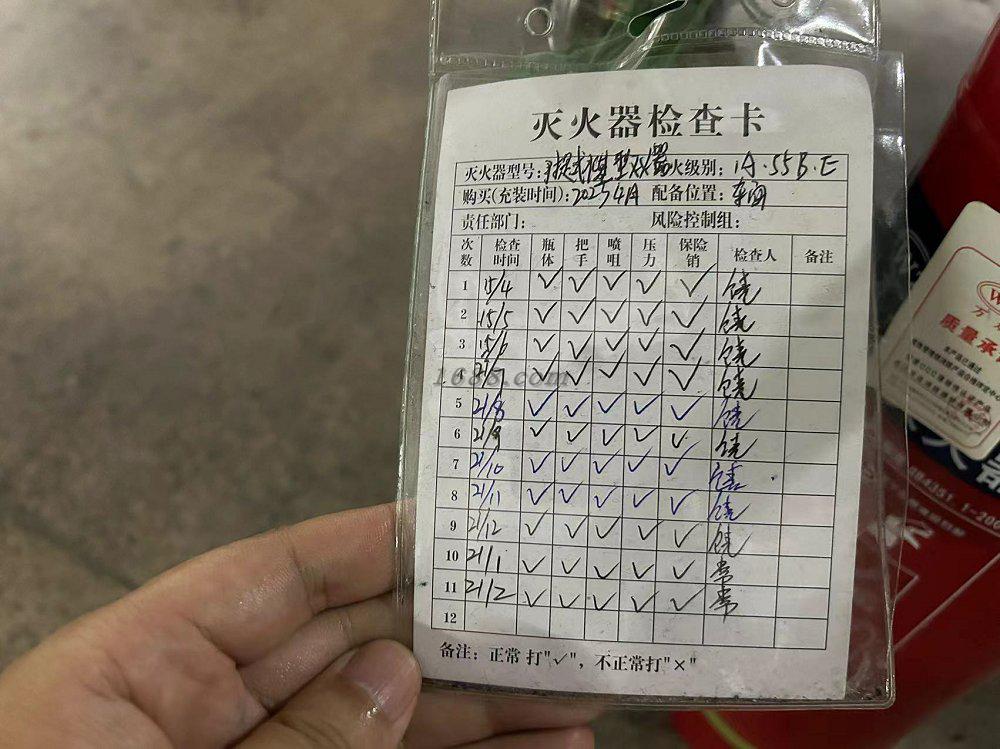 灭火器检查卡
灭火器型号: 火级别: 1A.55B.E
购买(充装时间): 2025 4月 配备位置: 车间
责任部门: 风险控制组:
次数 检查时间 瓶体 把手 喷咀 压力 保险销 检查人 备注
1 15/4 ✓ ✓ ✓ ✓ ✓ 饶
2 15/5 ✓ ✓ ✓ ✓ ✓ 饶
3 15/6 ✓ ✓ ✓ ✓ ✓ 饶
4 21/7 ✓ ✓ ✓ ✓ ✓ 饶
1688.com
5 21/8 ✓ ✓ ✓ ✓ ✓ 饶
6 21/9 ✓ ✓ ✓ ✓ ✓ 饶
7 21/10 ✓ ✓ ✓ ✓ ✓ 饶
8 21/11 ✓ ✓ ✓ ✓ ✓ 饶
9 21/12 ✓ ✓ ✓ ✓ ✓ 饶
10 21/1 ✓ ✓ ✓ ✓ ✓ 常
11 21/2 ✓ ✓ ✓ ✓ ✓ 常
12
备注: 正常 打"✓", 不正常打"×"
质量承